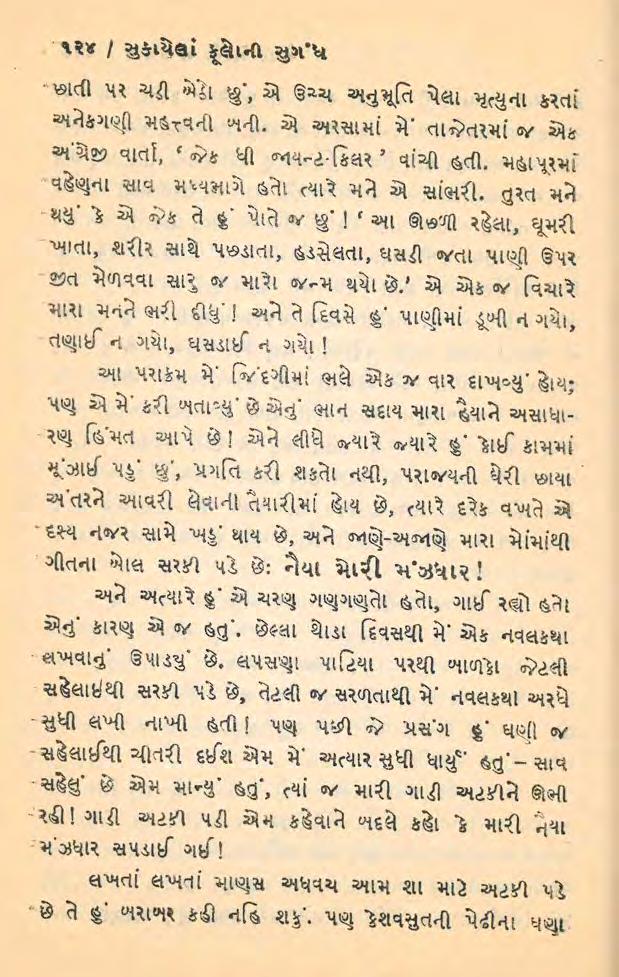 ૧૨૪ / સુકાયેલાં ફૂલોની સુગંધ
છાતી પર ચડી બેઠો છું, એ ઉચ્ચ અનુભૂતિ પેલા મૃત્યુના કરતાં
અનેકગણી મહત્ત્વની બની. એ અરસામાં મેં તાજેતરમાં જ એક
અંગ્રેજી વાર્તા, ‘ જેક ધી જાયન્ટ-કિલર ’ વાંચી હતી. મહાપૂરમાં
વહેણના સાવ મધ્યભાગે હતો ત્યારે મને એ સાંભરી. તુરત મને
થયું કે એ જેક તે હું પોતે જ છું ! ‘ આ ઊછળી રહેલા, ઘૂમરી
ખાતા, શરીર સાથે પછડાતા, હડસેલતા, ઘસડી જતા પાણી ઉપર
જીત મેળવવા સારુ જ મારો જન્મ થયો છે.’ એ એક જ વિચારે
મારા મનને ભરી દીધું ! અને તે દિવસે હું પાણીમાં ડૂબી ન ગયો,
તણાઈ ન ગયો, ઘસડાઈ ન ગયો !
આ પરાક્રમ મેં જિંદગીમાં ભલે એક જ વાર દાખવ્યું હોય;
પણ એ મેં કરી બતાવ્યું છે એનું ભાન સદાય મારા હૈયાને અસાધા-
રણ હિંમત આપે છે ! એને લીધે જ્યારે જ્યારે હું કોઈ કામમાં
મૂંઝાઈ પડું છું, પ્રગતિ કરી શકતો નથી, પરાજયની ઘેરી છાયા
અંતરને આવરી લેવાની તૈયારીમાં હોય છે, ત્યારે દરેક વખતે એ
દશ્ય નજર સામે ખડું થાય છે, અને જાણે-અજાણે મારા મોંમાંથી
ગીતના બોલ સરકી પડે છેઃ નૈયા મોરી મંઝધાર !
અને અત્યારે હું એ ચરણ ગણગણતો હતો, ગાઈ રહ્યો હતો
એનું કારણ એ જ હતું. છેલ્લા થોડા દિવસથી મેં એક નવલકથા
લખવાનું ઉપાડયું છે. લપસણા પાટિયા પરથી બાળકો જેટલી
સહેલાઈથી સરકી પડે છે, તેટલી જ સરળતાથી મેં નવલકથા અરધે
સુધી લખી નાખી હતી ! પણ પછી જે પ્રસંગ હું ઘણી જ
સહેલાઈથી ચીતરી દઈશ એમ મેં અત્યાર સુધી ધાર્યું હતું – સાવ
સહેલું છે એમ માન્યું હતું, ત્યાં જ મારી ગાડી અટકીને ઊભી
રહી ! ગાડી અટકી પડી એમ કહેવાને બદલે કહો કે મારી નૈયા
મંઝધાર સપડાઈ ગઈ !
લખતાં લખતાં માણસ અધવચ આમ શા માટે અટકી પડે
છે તે હું બરાબર કહી નહિ શકું. પણ કેશવસુતની પેઢીના ઘણા